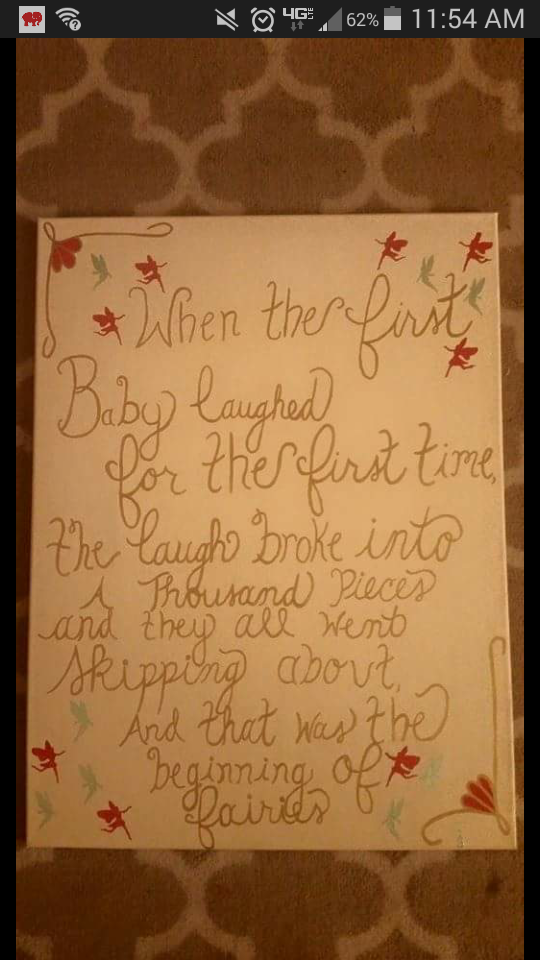 4G LTE 62% 11:54 AM
When the first
Baby laughed
for the first time,
the laugh broke into
A Thousand Pieces
and they all went
skipping about,
And that was the
beginning of
fairies